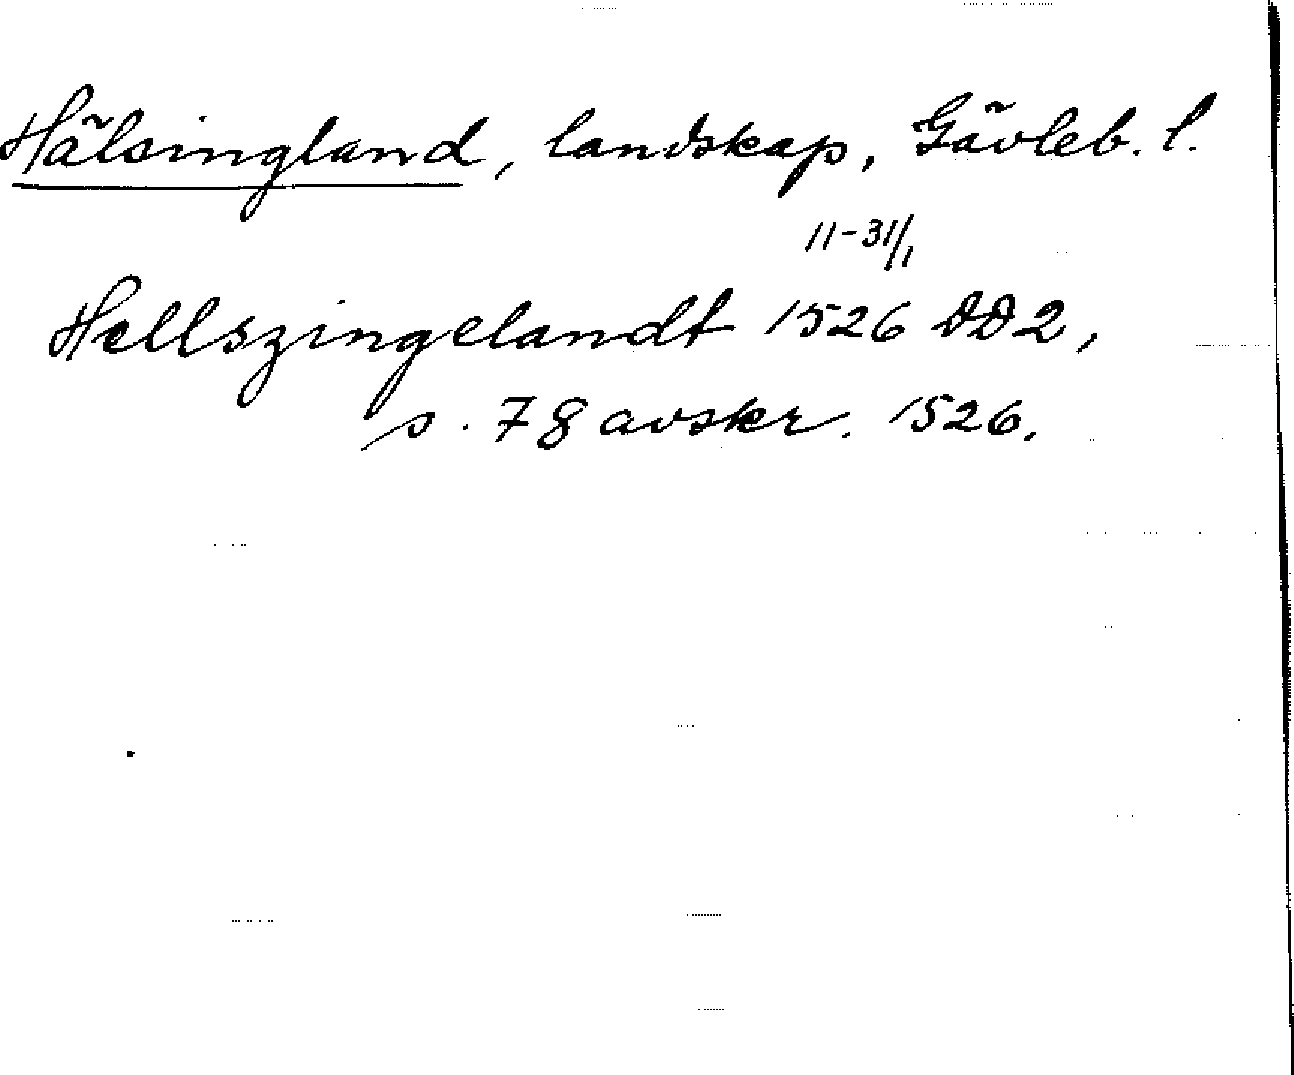 Hälsingland, landskap, Gävleb. l.
11-31/1
Hellszingelandt 1526 DD2,
s. 78 avskr. 1526.